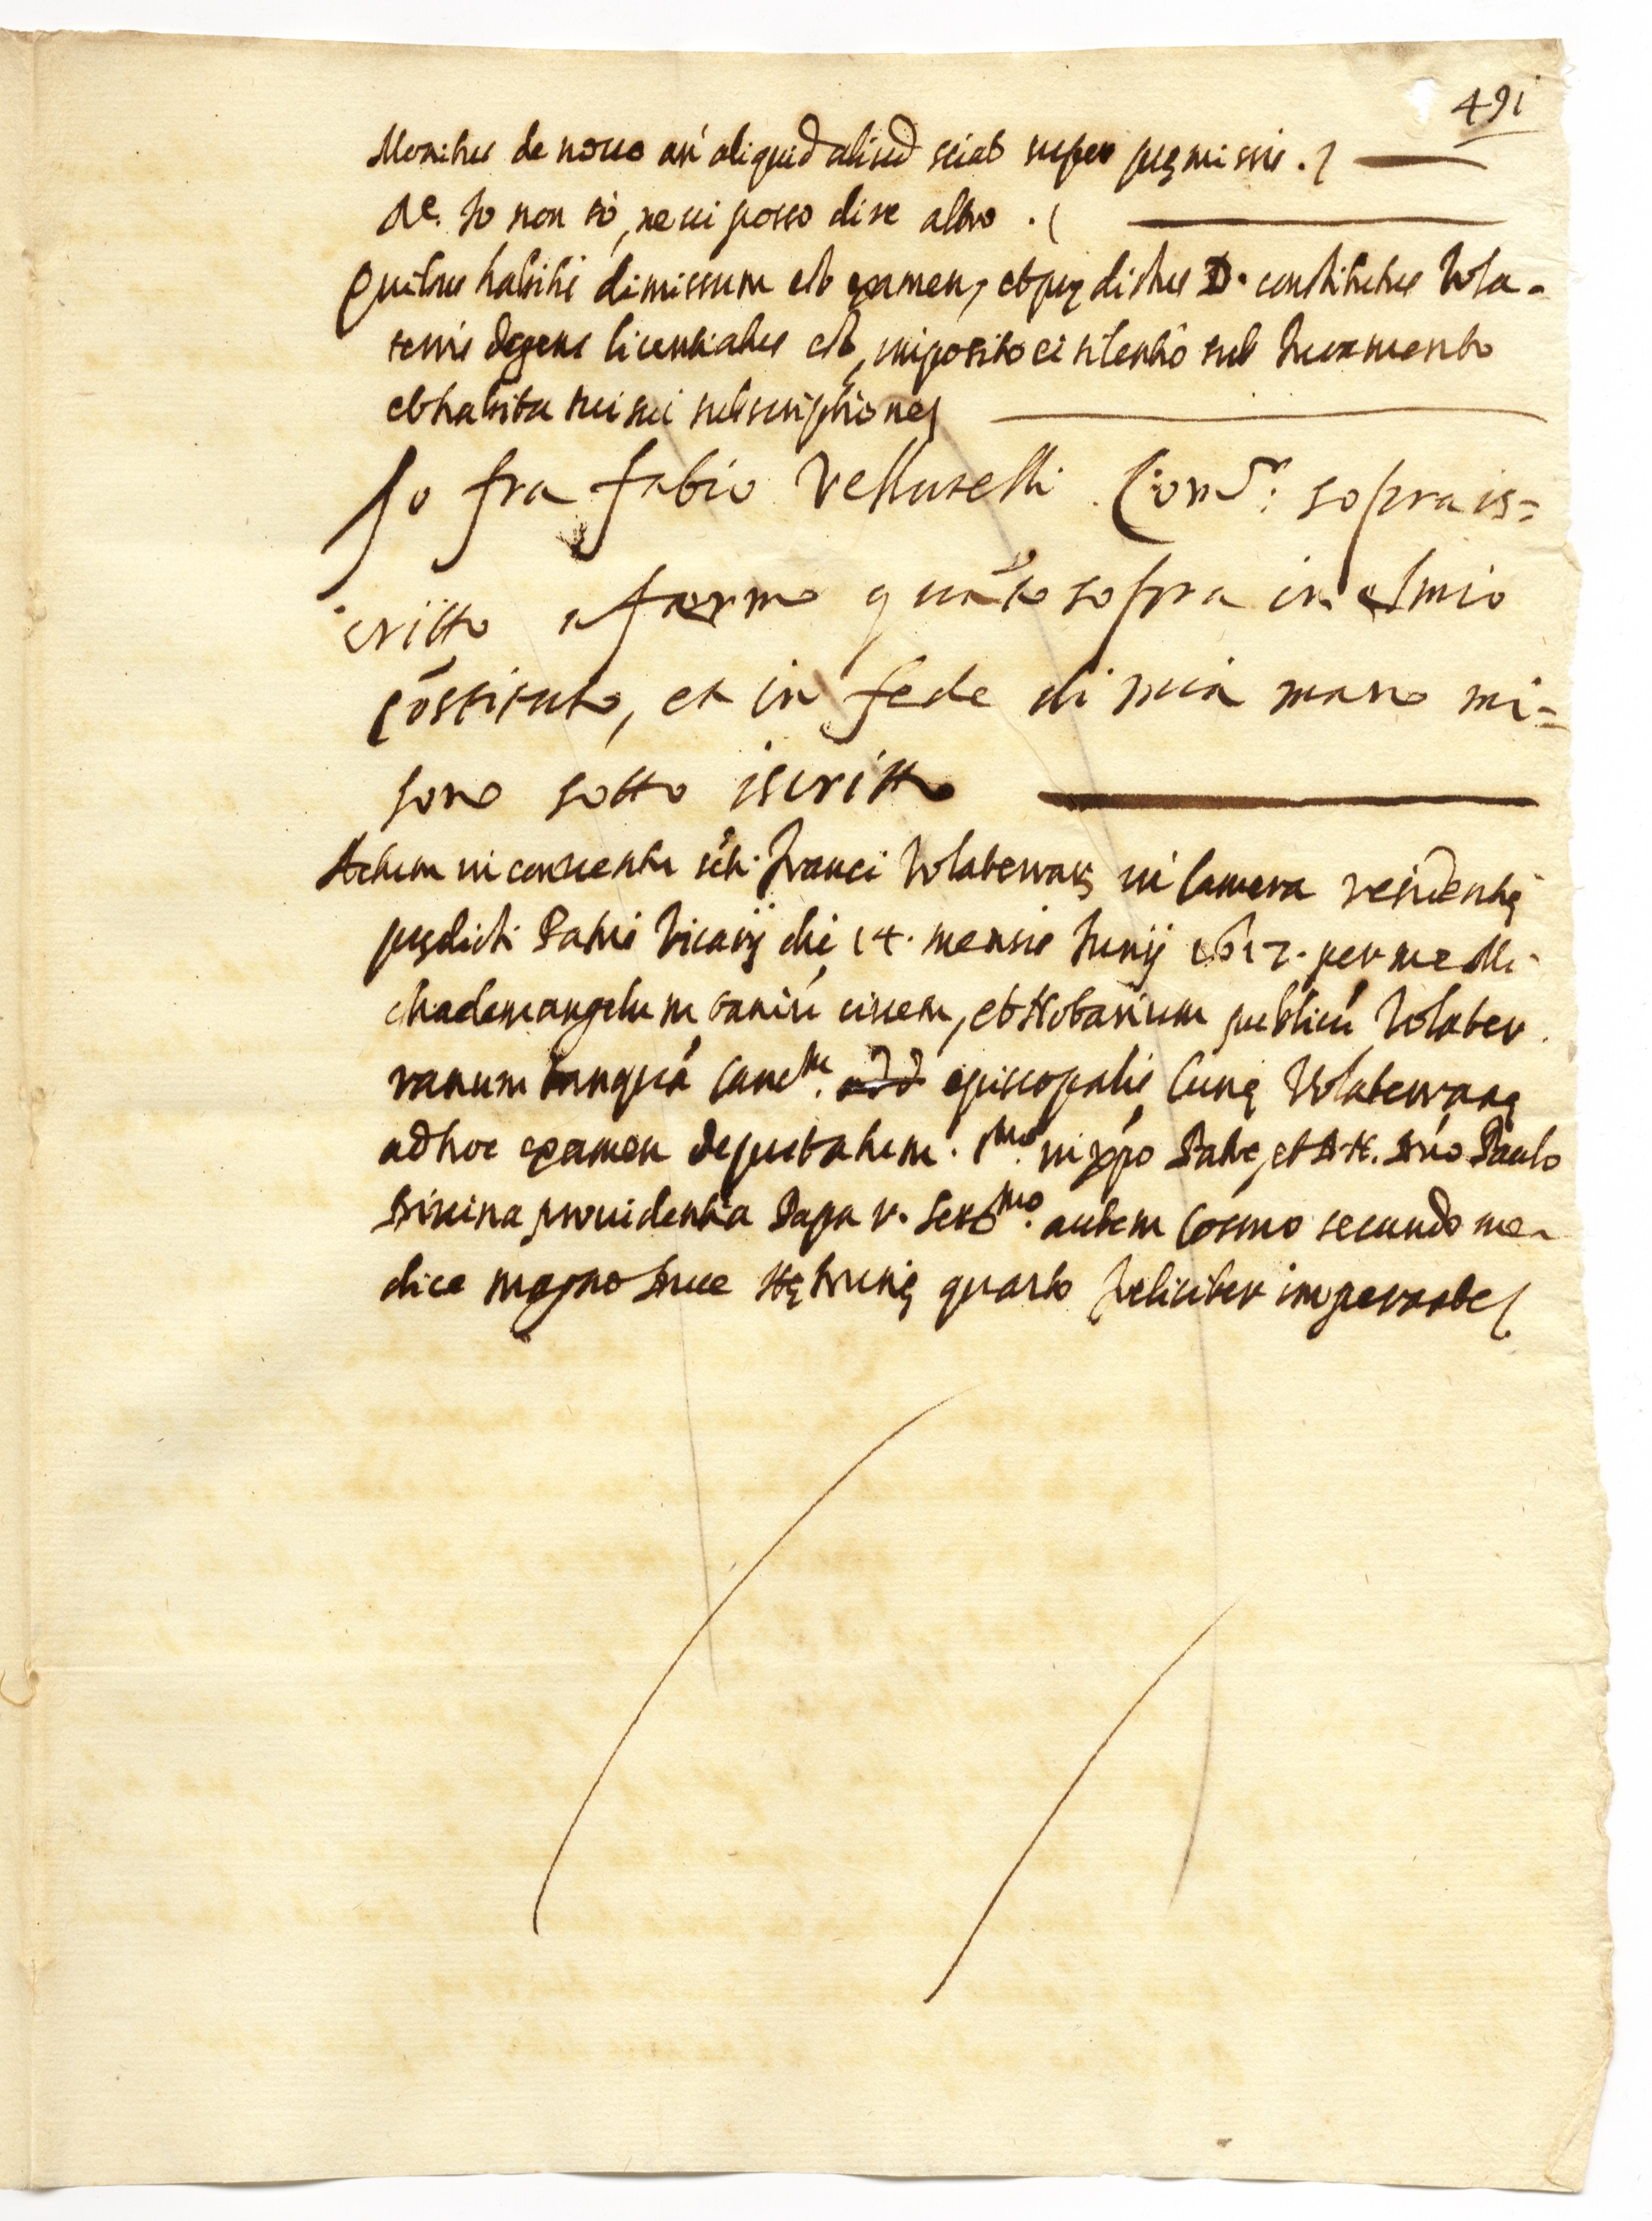 491
Monitus de novo an̄ aliquid aliud sciat super pręmissis.
Re. Io non so, ne vi posso dire altro.
Quibus habitis dimissum est examen, et prędictus D. constitutus Vola-
terris degens licentiatus est, imposito ei silentio sub Iuramento
et habita sui subscriptione
Io fra fabio Vellutelli soprais=
critto afermo quāto sopra in el mio
cōstituto, et in fede di mia mano mi=
sono sotto iscritto
Actum in conventu sti. Franci Volaterrarȝ in Camera residentię
prędicti Patris Vicarij die 14. mensis Iunij 1617. per me Mi-
chaelemangelum civem, et Notarium publicū Volater
ranum tanquā Canc.m episcopalis Curię Volaterranę
ad hoc examen deputatum. in xp̄o Patre, et D.N. Dn̄o Paulo
Divina providentia Papa v. Ser.mo autem Cosmo secundo me-
dice magno Duce Hętrurię quarto feliciter imperante